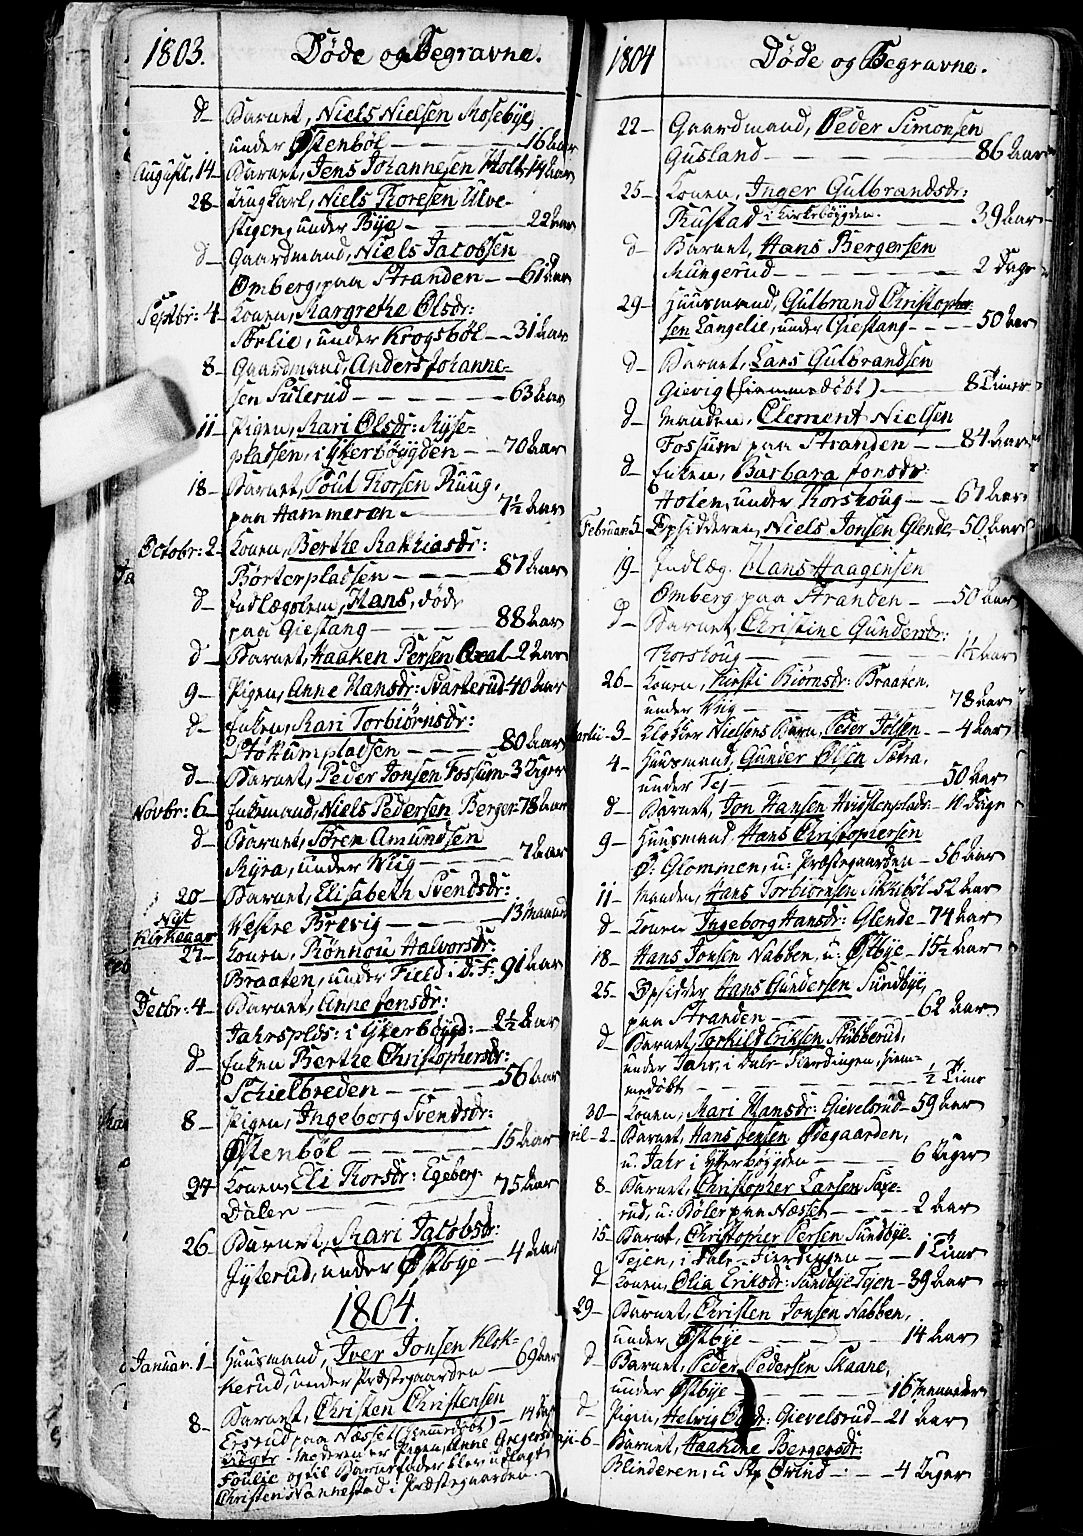 1803. Døde og Begravne.
d– Barnet, Niels Nielsen Mosebye,
under Østenbøl – – – 16 Aar
August, 14– Barnet, Jens Johannesen Holt– 14 Aar
28– Ung Karl, Niels Thoresen Ulve-
stigen, under Bye – – – 22 Aar
d– Gaardmand, Niels Jacobsen
Omberg, paa Stranden – 61 Aar
Septbr: 4– Konen, Margrethe Olsdr:
Sørlie, under Krogsbøl – 31 Aar
8– Gaardmand, Anders Johanne-
sen Sulerud – – – 63 Aar
11– Pigen, Mari Olsdr: Myse-
pladsen, i Ytterbøygden – 70 Aar
18– Barnet, Poul Thorsen Ruug,
paa Hammeren – – – 7½ Aar
Octobr: 2– Konen, Berthe Mathiasdr:
Børterpladsen – – – 87 Aar
d– Indlægslem, Hans, døde
paa Giestang – – – 88 Aar
d– Barnet, Haaken Persen – 2 Aar
9– Pigen, Anne Hansdr: Svarterud– 40 Aar
d– Enken, Mari Torbiørnsdr:
Støttumpladsen – – – 80 Aar
d– Barnet, Peder Jonsen Fossum– 3 Uger
Novbr: 6– Enkemand, Niels Pedersen Berger– 78 Aar
d– Barnet, Søren Amundsen
Myra, under Wiig – – 7 Aar
20– Barnet, Elisabeth Svendsdr:
Westre Brevig – – – 13 Maaned
Nyt
Kirkeaar
27– Konen, Rønnou Halvorsdr:
Braaten, under Field i D: F: 91 Aar
Decbr: 4– Barnet, Anne Jensdr:
Jahrsplds: i Ytterbøygd: – 2½ Aar
d– Enken Berthe Christophersdr:
Schielbreden – – – 56 Aar
8– Pigen, Ingeborg Svendsdr:
Østenbøl – – – 15 Aar
27 Konen, Eli Thorsdr: Egeberg-
Dalen – – – 75 Aar
26 Barnet, Mari Jacobsdr:
Jyterud, under Østbye – 4 Aar
1804.
Januar. 1– Huusmand, Iver Jonsen Klok-
kerud, under Præstegaarden – 69 Aar
8– Barnet, Christen Christensen
Ersrud paa Næsset (hjemmedøbt) – 14 Dage
uægte – Moderen er Pigen, Anne Gregersd
Foulie og til Barnefader blev udlagt
Christen Nannestad i Præstegaarden.
1804 Døde og Begravne.
22– Gaardmand, Peder Simonsen
Gusland – – – 86 Aar
25– Konen, Inger Gulbrandsdr:
Rustad i Kirkebøygden. – 39 Aar
d– Barnet, Hans Bergersen
Mungerud – – – 2 Dage
29– Huusmand, Gulbrand Christopher-
sen Langelie, under Giestang – – 50 Aar
d– Barnet, Lars Gulbrandsen
Gievig (hiemmedøbt) – – 8 Timer
d– Manden, Clement Nielsen
Fossum paa Stranden – – 84 Aar
d– Enken, Barbara Jonsdr:
Holen, under Korshoug – – 67 Aar
Februar 5– Opsidderen, Niels Jonsen Glende– 50 Aar
19– Indlæg. Hans Haagensen
Omberg paa Stranden – – 50 Aar
d– Barnet, Christine Gundersdr:
Thorshoug – – – 1½ Aar
26– Konen, Kirsti Biørnsdr: Braaten,
under Wiig – – – 78 Aar
Martii– 3 Klokker Nielsens Barn, Peder Jølsen – – 4 Aar
4– Huusmand, Gunder Olsen Sætra,
under Tej – – – 50 Aar
d– Barnet, Jon Hansen Hvidstenplads – 10 Dage
9– Huusmand, Hans Christophersen
Ø: Glommen, u: Præstegaarden – 56 Aar
11– Manden, Hans Torbiørnsen Sikkebøl– 52 Aar
d– Konen Ingeborg Hansdr: Glende – 74 Aar
18– Hans Jonsen Nabben, u: Østbye – 15½ Aar
25– Opsidder Hans Gundersen Sundbye,
paa Stranden – – – 62 Aar
d– Barnet, Torkild Eriksen Stubberud,
under Jahr, i Dals-Fierdingen, hiem-
medøbt – – – ½ Time
30– Konen, Mari Hansdr: Gievelsrud– 59 Aar
April– 2– Barnet, Hans Jensen Ødegaarden,
u. Jahr i Ytterbøygden – – 6 Uger
8– Barnet, Christopher Larsen Saxe-
rud, u: Bøler paa Næsset – – 2 Aar
15– Barnet, Christopher Persen Sundbye-
Tejen, i Dals-Fierdingen – – 1 Time
d Konen, Olia Eriksdr: Sundbye Tejen– 39 Aar
29– Barnet, Christen Jonsen Nabben,
under Østbye – – – 14 Aar
d– Barnet, Peder Pedersen Skaane,
under Østbye – – 16 Maaneder
d– Pigen, Helvig Olsdr: Gievelsrud– 21 Aar
Maji– 6– Barnet, Haakine Bergersdr:
Blinderen, u – 4 Uger